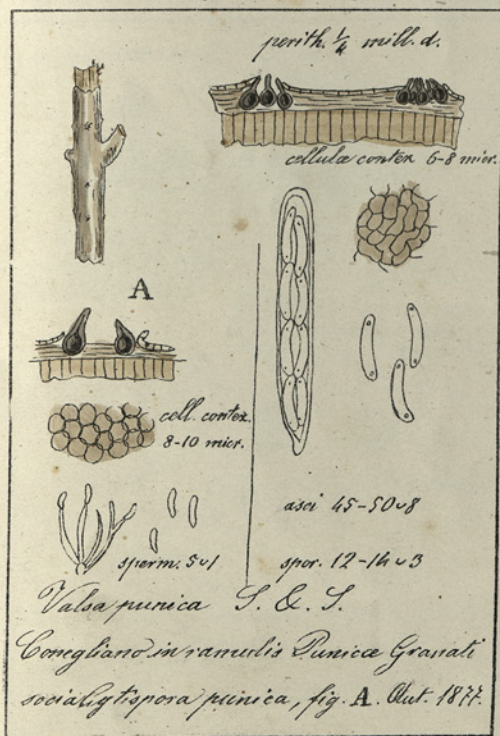 perith. 1/4 mill. d.
cellulæ contex 6-8 micr.
A
cell. contex.
8-10 micr.
asci 45-50 v 8
sperm. 5 v 1
spor. 12-14 v 3
Valsa punica S. & S.
Conegliano in ramulis Punicæ Granati
punica, fig. A. Aut. 1877.